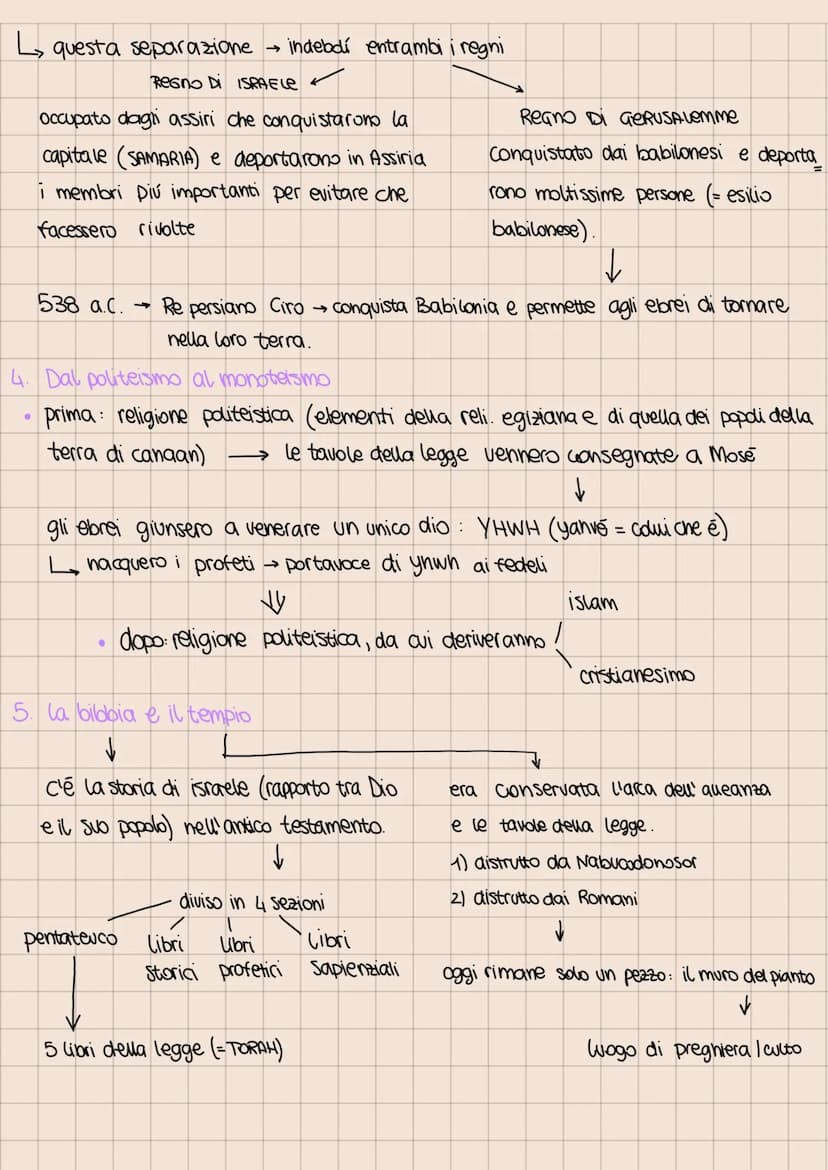 ↳ questa separazione → indebolí entrambi i regni
REGNO DI ISRAELE
occupato dagli assiri che conquistarono la
capitale (SAMARIA) e deportarono in Assiria
i membri piú importanti per evitare che
facessero rivolte
REGNO DI GERUSALEMME
conquistato dai babilonesi e deporta
rono moltissime persone (= esilio
babilonese).
538 a.C. → Re persiano Ciro → conquista Babilonia e permette agli ebrei di tornare
nella loro terra.
4. Dal politeismo al monoteismo
• prima: religione politeistica (elementi della reli. egiziana e di quella dei popoli della
terra di canaan) → le tavole della legge vennero consegnate a Mosé
gli ebrei giunsero a venerare un unico dio: YHWH (yahvé = colui che é)
↳ nacquero i profeti → portavoce di yhwh ai fedeli
islam
• dopo: religione politeistica, da cui deriveranno
cristianesimo
5. la bibbia e il tempio
c'é la storia di israele (rapporto tra Dio
e il suo popolo) nell'antico testamento.
diviso in 4 sezioni
pentateuco libri libri libri
storici profetici sapienziali
5 libri della legge (=TORAH)
era conservata l'arca dell'alleanza
e le tavole della legge.
1) distrutto da Nabucodonosor
2) distrutto dai Romani
oggi rimane solo un pezzo: il muro del pianto
luogo di preghiera / culto